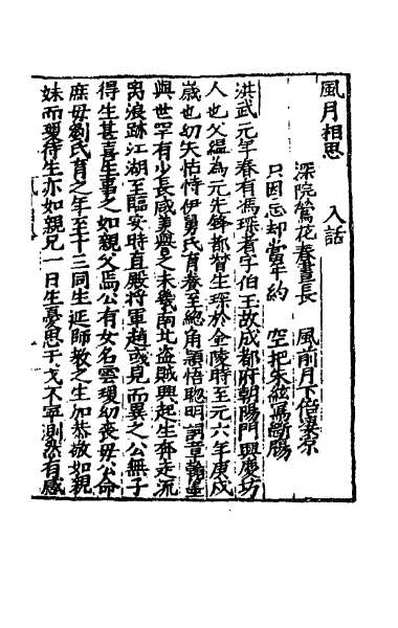 風月相思
入話
深院鶯花春晝長　風前月下倍凄凉
只因忘却當年約　空把朱絃寫斷腸
洪武元年春有馮琛者字伯玉故成都府朝陽門興慶坊
人也父緼為元先鋒都督生琛於金陵時至元六年庚戍
歲也切失怙恃伊舅氏育養至緫角頴悟聡明詞章翰墨
與世罕有少長咸羙異之未㡬南北盗賊興起生奔走流
离浪跡江湖至臨安時直殿將軍趙彧見而異之公無子
得生甚喜生事之如親父焉公有女名雲瓊幼丧母公命
庶母劉氏育之年至十三同生延師教之生加恭敬如親
妹而瓊待生亦如親兄一日生憂思干戈不寧測然有感